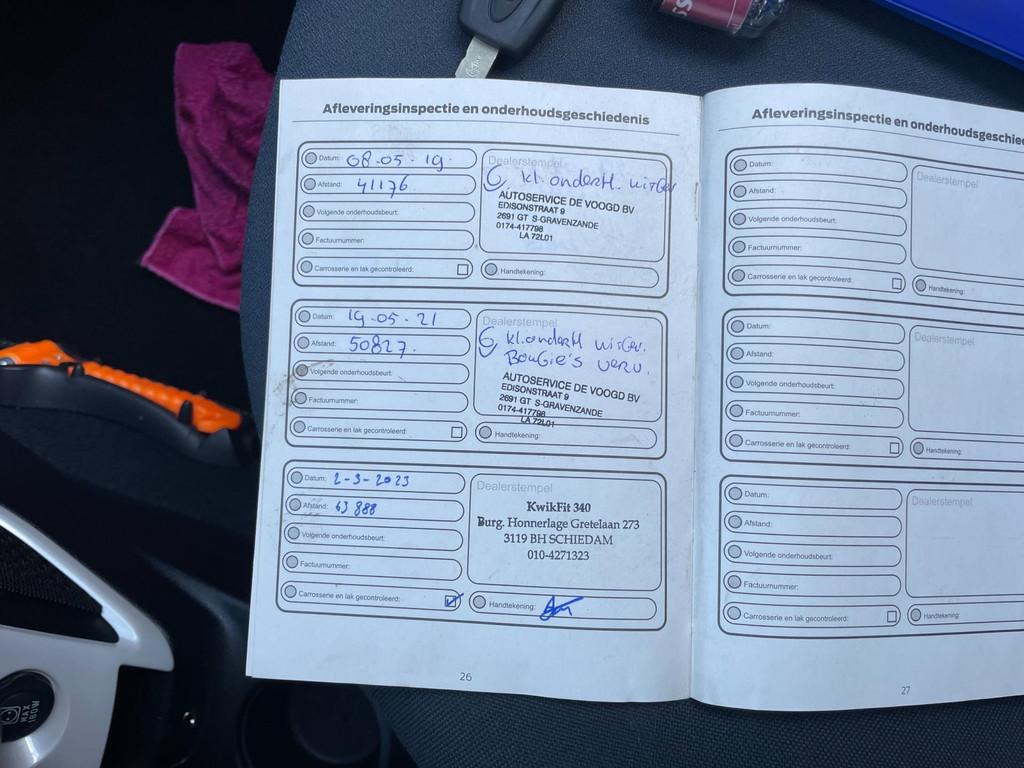 Afleveringsinspectie en onderhoudsgeschiedenis
Datum: 08-05-19.
Afstand: 41176
Volgende onderhoudsbeurt:
Factuurnummer:
Carrosserie en lak gecontroleerd:
Dealerstempel
kl. onderh.
AUTOSERVICE DE VOOGD BV
EDISONSTRAAT 9
2691 GT S-GRAVENZANDE
0174-417798
LA 72L01
Handtekening:
Datum: 19-05-21
Afstand: 50827.
Volgende onderhoudsbeurt:
Factuurnummer:
Carrosserie en lak gecontroleerd:
Dealerstempel
kl. onderh
Bougie's verv.
AUTOSERVICE DE VOOGD BV
EDISONSTRAAT 9
2691 GT S-GRAVENZANDE
0174-417798
LA 72L01
Handtekening:
Datum: 2-3-2023
Afstand: 63888
Volgende onderhoudsbeurt:
Factuurnummer:
Carrosserie en lak gecontroleerd:
Dealerstempel
KwikFit 340
Burg. Honnerlage Gretelaan 273
3119 BH SCHIEDAM
010-4271323
Handtekening:
26
Afleveringsinspectie en onderhoudsgeschie
Datum:
Afstand:
Volgende onderhoudsbeurt:
Factuurnummer:
Carrosserie en lak gecontroleerd:
Dealerstempel
Handtekening:
Datum:
Afstand:
Volgende onderhoudsbeurt:
Factuurnummer:
Carrosserie en lak gecontroleerd:
Dealerstempel
Handtekening:
Datum:
Afstand:
Volgende onderhoudsbeurt:
Factuurnummer:
Carrosserie en lak gecontroleerd:
Dealerstempel
Handtekening:
27
MAX
180W